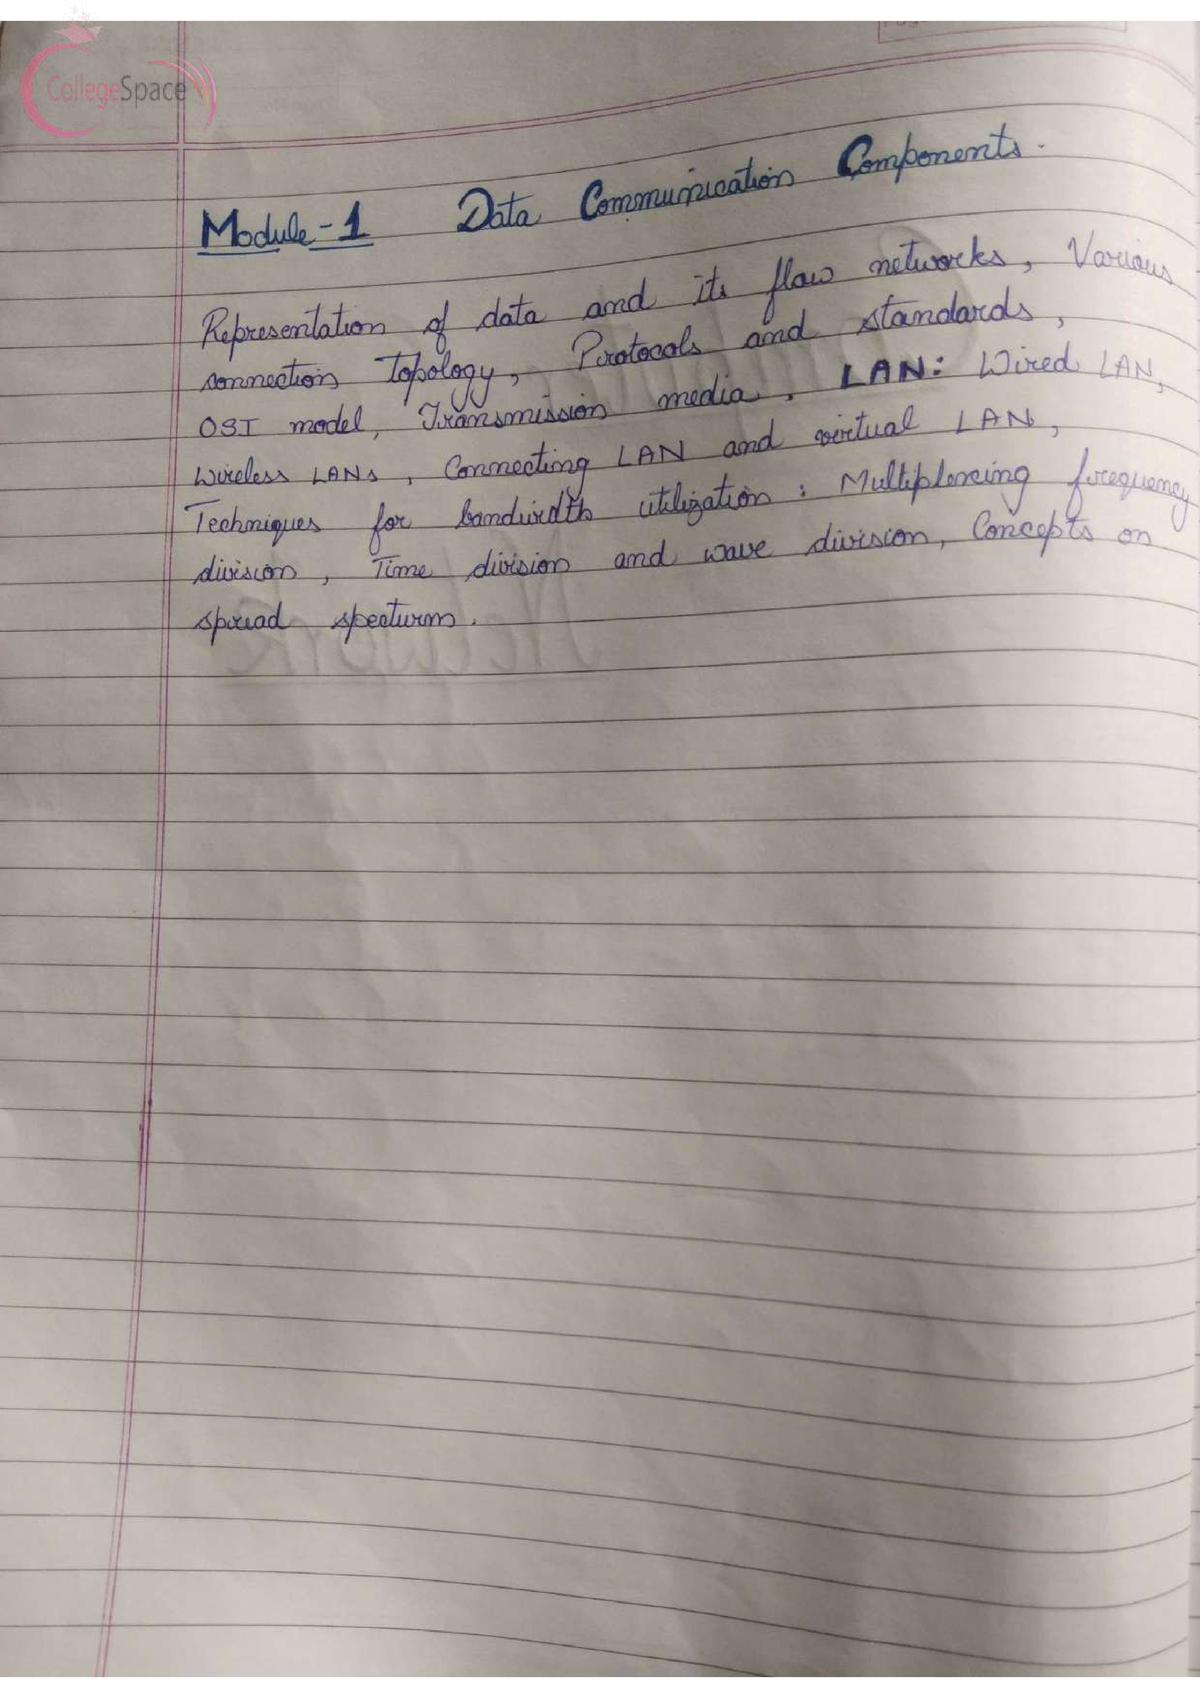 CollegeSpace
Module-1 Data Communication Components.
Representation of data and its flow networks, Various
connection Topology, Protocols and standards,
OSI model, Transmission media, LAN: Wired LAN,
Wireless LANs, Connecting LAN and virtual LAN,
Techniques for bandwidth utilization: Multiplexing frequency
division, Time division and wave division, Concepts on
spread specturm.